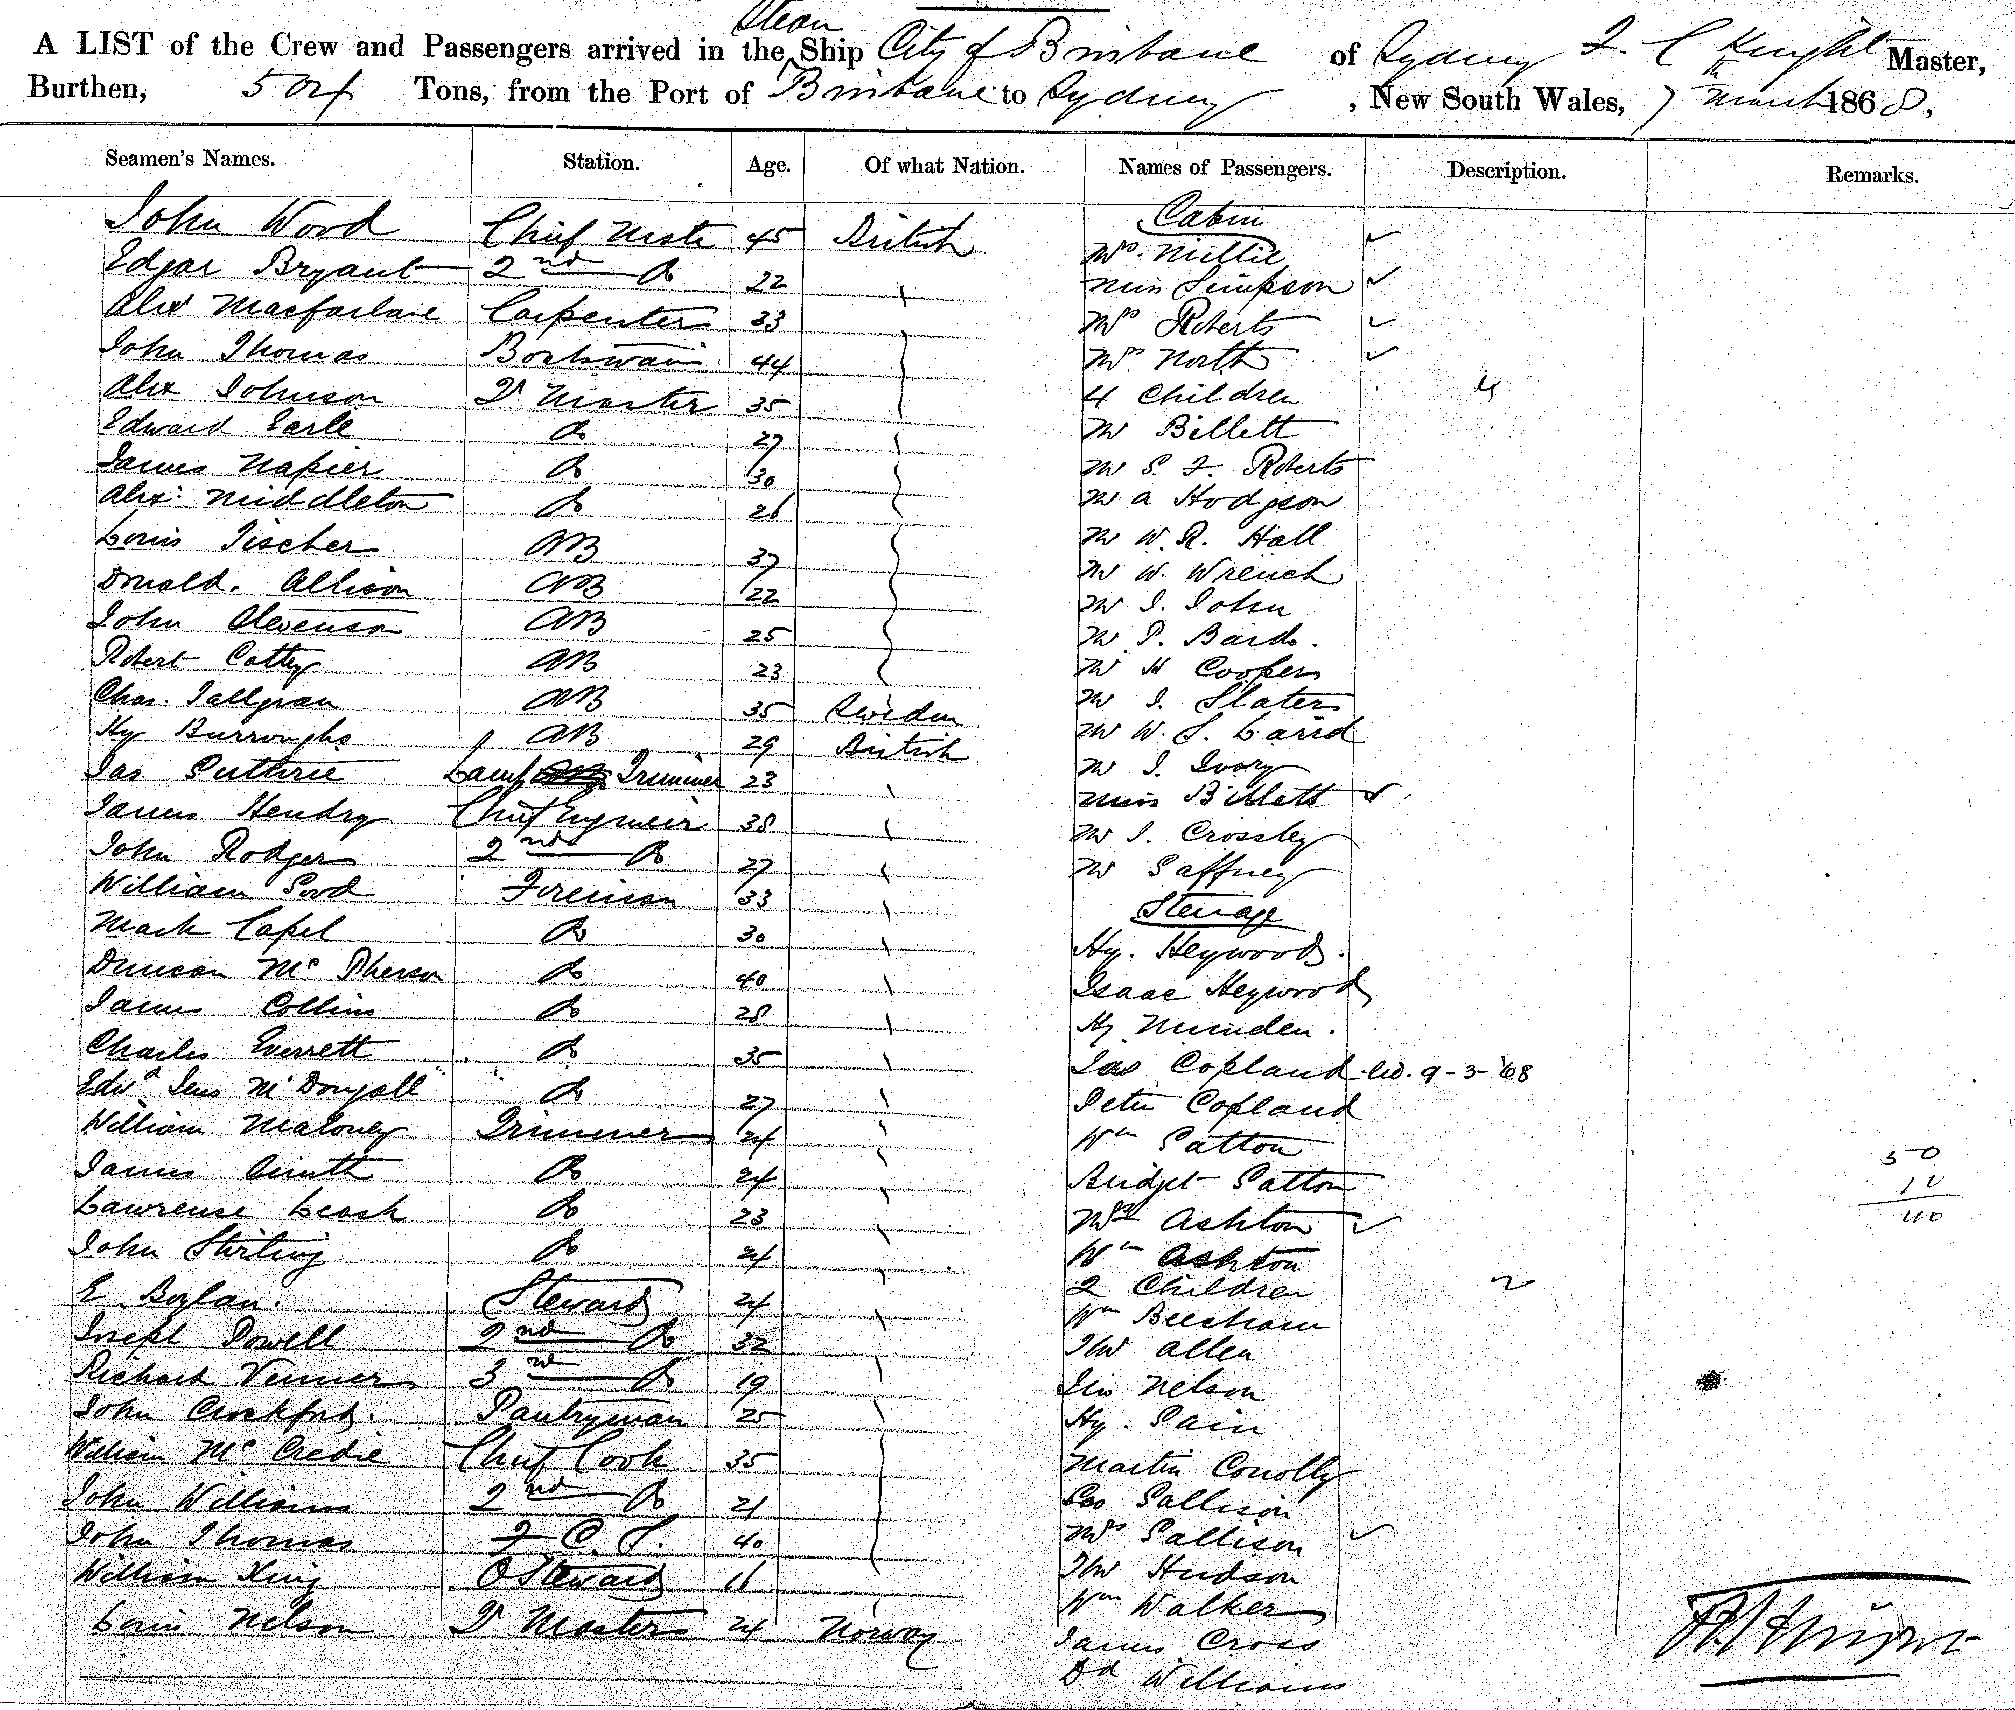 Steam
A LIST of the Crew and Passengers arrived in the Ship City of Brisbane of Sydney Knight Master,
Burthen, 504 Tons, from the Port of Brisbane to Sydney, New South Wales, 7th March 1868,
Seamen's Names. Station. Age. Of what Nation. Names of Passengers. Description. Remarks.
Cabin
John Wood Chief Mate 45 British Mrs. Millie
Edgar Bryant 2nd Do 22 Miss Simpson
Alex Macfarlane Carpenter 33 Mrs Roberts
John Thomas Boatswain 44 Mrs North
Alex Johnson Qr Master 35 4 Children 4
Edward Earle Do 27 Mr Billett
James Napier Do 30 Mr S. F. Roberts
Alex: Middleton Do 26 Mr A Hodgson
Louis Fischer AB 37 Mr W. R. Hall
Donald. Allison AB 22 Mr W. Wrench
John Stevenson AB 25 Mr J. John
Robert Catty AB 23 Mr P. Bards.
Chas. AB 35 Sweden Mr H Cooper
Hy Burroughs AB 29 British Mr J. Slater
Jas Guthrie Lamp Trimmer 23 Mr W. S. Laird
James Hendry Chief Engineer 38 Mr J. Ivory
John Rodger 2nd Do 27 Miss Billett
William Fireman 33 Mr J. Crossley
Mark Capel Do 30 Mr Gaffney
Duncan Mc Pherson Do 40 Steerage
James Collins Do 28 Hy. Heywood.
Charles Everrett Do 35 Isaac Heywood
Edwd McDougall Do 27 Hy
William Maloney Trimmer 24 Jas Copland 9-3-'68
James Smith Do 24 Peter Copland
Lawrense Leash Do 23 Wm Patton
John Stirling Do 24 Bridget Patton
E Boylan. Steward 24 Mrs Ashton
Joseph Powell 2nd Do 32 Wm Ashton
Richard Venner 3rd Do 19 2 Children 2
John Crockford. Pantryman 25 Wm Beesham
William Mc Credie Chief Cook 35 Thos Allen
John Williams 2nd Do 21 Nelson
John Thomas F. C. S. 40 Hy. Pain
William King O Steward 16 Martin Conolly
Louis Nelson Qr Master 24 Norway Geo Pallison
Mrs Pallison
Thos Hudson
Wm Walker
James Cross
Dd Williams
50
10
40